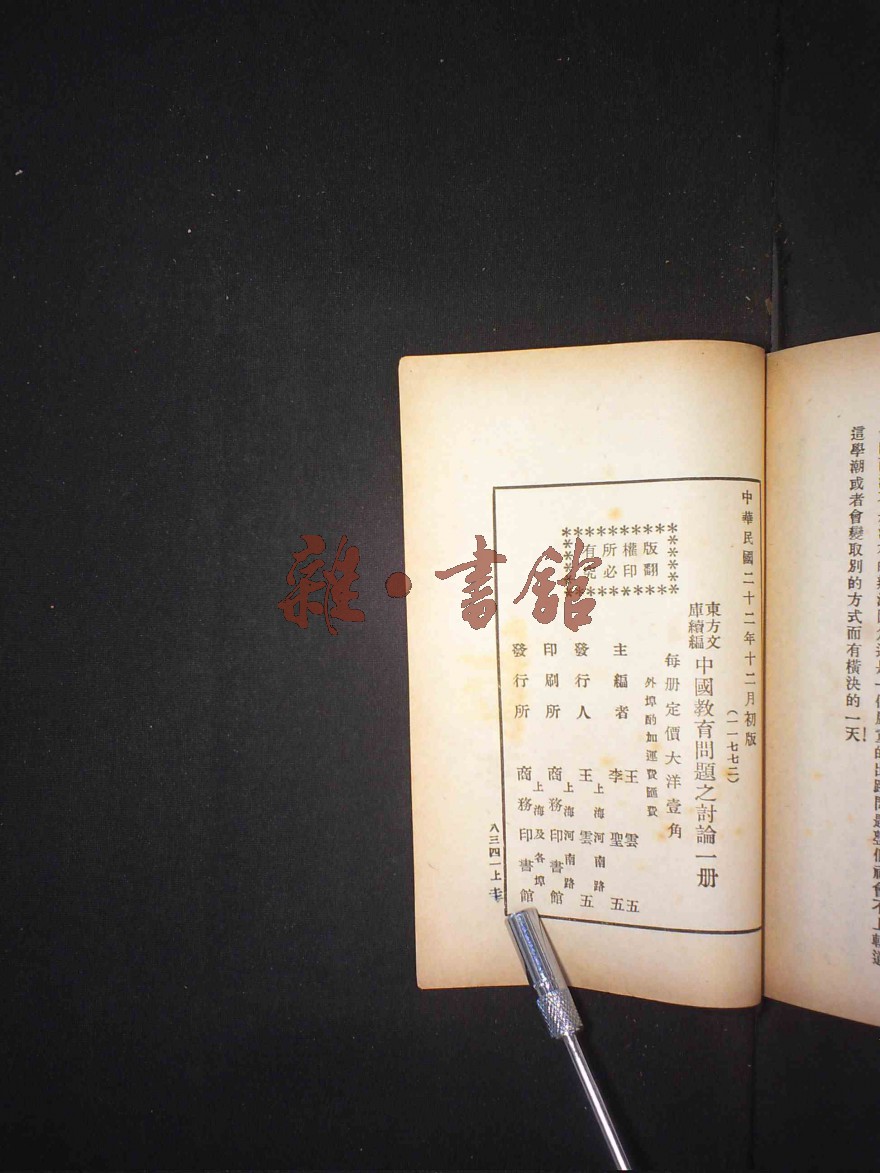 這學潮或者會變取別的方式而有橫決的一天！
中華民國二十二年十二月初版
（一一七七二）
東方文庫續編
中國教育問題之討論一册
每册定價大洋壹角
外埠酌加運費匯費
版權所有
翻印必究
主編者
王雲五
李聖五
發行人
上海河南路
王雲五
印刷所
上海河南路
商務印書館
發行所
上海及各埠
商務印書館
八三四一上
雜·書館